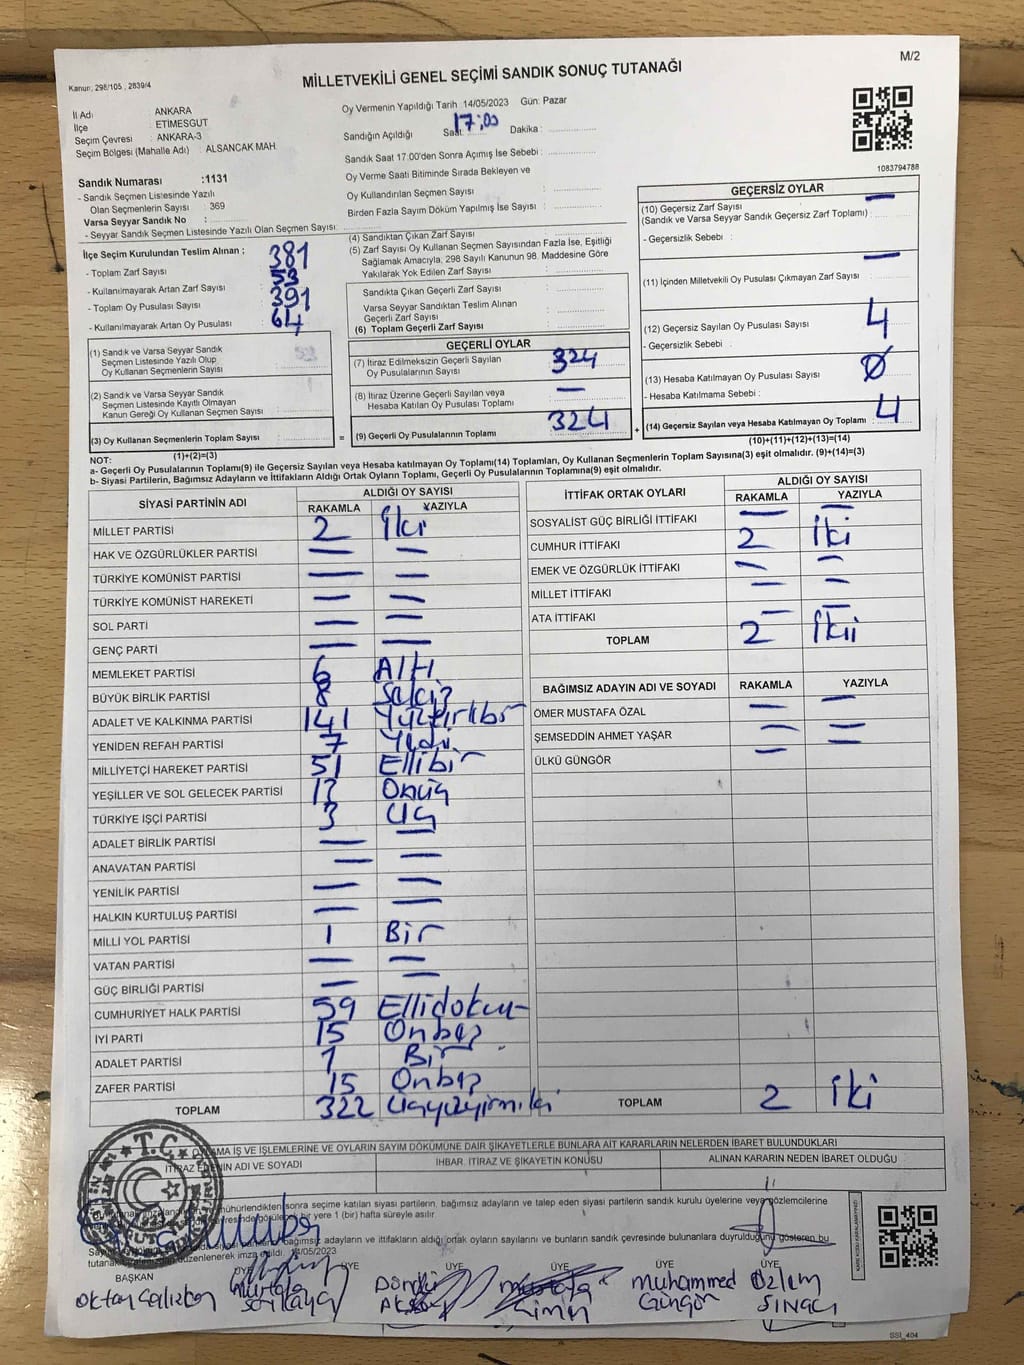 M/2
Kanun, 298/105 , 2839/4
MİLLETVEKİLİ GENEL SEÇİMİ SANDIK SONUÇ TUTANAĞI
İl Adı : ANKARA
İlçe : ETİMESGUT
Seçim Çevresi : ANKARA-3
Seçim Bölgesi (Mahalle Adı) : ALSANCAK MAH.
Oy Vermenin Yapıldığı Tarih 14/05/2023 Gün: Pazar
Sandığın Açıldığı Saat 17:00 Dakika :
Sandık Saat 17:00'den Sonra Açımış İse Sebebi :
Oy Verme Saati Bitiminde Sırada Bekleyen ve
Oy Kullandırılan Seçmen Sayısı :
Birden Fazla Sayım Döküm Yapılmış İse Sayısı :
1083794788
Sandık Numarası :1131
- Sandık Seçmen Listesinde Yazılı
Olan Seçmenlerin Sayısı : 369
Varsa Seyyar Sandık No :
- Seyyar Sandık Seçmen Listesinde Yazılı Olan Seçmen Sayısı :
İlçe Seçim Kurulundan Teslim Alınan ;
- Toplam Zarf Sayısı : 381
- Kullanılmayarak Artan Zarf Sayısı : 53
- Toplam Oy Pusulası Sayısı : 391
- Kullanılmayarak Artan Oy Pusulası : 64
(1) Sandık ve Varsa Seyyar Sandık
Seçmen Listesinde Yazılı Olup
Oy Kullanan Seçmenlerin Sayısı :
(2) Sandık ve Varsa Seyyar Sandık
Seçmen Listesinde Kayıtlı Olmayan
Kanun Gereği Oy Kullanan Seçmen Sayısı :
(3) Oy Kullanan Seçmenlerin Toplam Sayısı :
(1)+(2)=(3)
(4) Sandıktan Çıkan Zarf Sayısı :
(5) Zarf Sayısı Oy Kullanan Seçmen Sayısından Fazla İse, Eşitliği
Sağlamak Amacıyla, 298 Sayılı Kanunun 98. Maddesine Göre
Yakılarak Yok Edilen Zarf Sayısı :
Sandıkta Çıkan Geçerli Zarf Sayısı :
Varsa Seyyar Sandıktan Teslim Alınan
Geçerli Zarf Sayısı :
(6) Toplam Geçerli Zarf Sayısı :
GEÇERLİ OYLAR
(7) İtiraz Edilmeksizin Geçerli Sayılan
Oy Pusulalarının Sayısı : 324
(8) İtiraz Üzerine Geçerli Sayılan veya
Hesaba Katılan Oy Pusulası Toplamı : —
= (9) Geçerli Oy Pusulalarının Toplamı : 324
GEÇERSİZ OYLAR
(10) Geçersiz Zarf Sayısı —
(Sandık ve Varsa Seyyar Sandık Geçersiz Zarf Toplamı) :
- Geçersizlik Sebebi :
(11) İçinden Milletvekili Oy Pusulası Çıkmayan Zarf Sayısı : —
(12) Geçersiz Sayılan Oy Pusulası Sayısı : 4
- Geçersizlik Sebebi :
(13) Hesaba Katılmayan Oy Pusulası Sayısı : 0
- Hesaba Katılmama Sebebi :
+ (14) Geçersiz Sayılan veya Hesaba Katılmayan Oy Toplamı : 4
(10)+(11)+(12)+(13)=(14)
NOT:
a- Geçerli Oy Pusulalarının Toplamı(9) ile Geçersiz Sayılan veya Hesaba katılmayan Oy Toplamı(14) Toplamları, Oy Kullanan Seçmenlerin Toplam Sayısına(3) eşit olmalıdır. (9)+(14)=(3)
b- Siyasi Partilerin, Bağımsız Adayların ve İttifakların Aldığı Ortak Oyların Toplamı, Geçerli Oy Pusulalarının Toplamına(9) eşit olmalıdır.
SİYASİ PARTİNİN ADI ALDIĞI OY SAYISI
RAKAMLA YAZIYLA
MİLLET PARTİSİ 2 İki
HAK VE ÖZGÜRLÜKLER PARTİSİ — —
TÜRKİYE KOMÜNİST PARTİSİ — —
TÜRKİYE KOMÜNİST HAREKETİ — —
SOL PARTİ — —
GENÇ PARTİ — —
MEMLEKET PARTİSİ 6 Altı
BÜYÜK BİRLİK PARTİSİ 8 Sekiz
ADALET VE KALKINMA PARTİSİ 141 Yüzkırkbir
YENİDEN REFAH PARTİSİ 7 Yedi
MİLLİYETÇİ HAREKET PARTİSİ 51 Ellibir
YEŞİLLER VE SOL GELECEK PARTİSİ 13 Onüç
TÜRKİYE İŞÇİ PARTİSİ 3 Üç
ADALET BİRLİK PARTİSİ — —
ANAVATAN PARTİSİ — —
YENİLİK PARTİSİ — —
HALKIN KURTULUŞ PARTİSİ — —
MİLLİ YOL PARTİSİ 1 Bir
VATAN PARTİSİ — —
GÜÇ BİRLİĞİ PARTİSİ — —
CUMHURİYET HALK PARTİSİ 59 Ellidokuz
İYİ PARTİ 15 Onbeş
ADALET PARTİSİ 1 Bir
ZAFER PARTİSİ 15 Onbeş
TOPLAM 322 Üçyüzyirmiiki
İTTİFAK ORTAK OYLARI ALDIĞI OY SAYISI
RAKAMLA YAZIYLA
SOSYALİST GÜÇ BİRLİĞİ İTTİFAKI — —
CUMHUR İTTİFAKI 2 İki
EMEK VE ÖZGÜRLÜK İTTİFAKI — —
MİLLET İTTİFAKI — —
ATA İTTİFAKI — —
TOPLAM 2 İkii
BAĞIMSIZ ADAYIN ADI VE SOYADI RAKAMLA YAZIYLA
ÖMER MUSTAFA ÖZAL — —
ŞEMSEDDİN AHMET YAŞAR — —
ÜLKÜ GÜNGÖR — —
TOPLAM 2 İki
OYLAMA İŞ VE İŞLEMLERİNE VE OYLARIN SAYIM DÖKÜMÜNE DAİR ŞİKAYETLERLE BUNLARA AİT KARARLARIN NELERDEN İBARET BULUNDUKLARI
İTİRAZ EDENİN ADI VE SOYADI İHBAR, İTİRAZ VE ŞİKAYETİN KONUSU ALINAN KARARIN NEDEN İBARET OLDUĞU
T.C.
mühürlendikten sonra seçime katılan siyasi partilerin, bağımsız adayların ve talep eden siyasi partilerin sandık kurulu üyelerine veya gözlemcilerine
bir yere 1 (bir) hafta süreyle asılır.
bağımsız adayların ve ittifakların aldığı ortak oyların sayılarını ve bunların sandık çevresinde bulunanlara duyrulduğunu gösteren bu
düzenlenerek imza edildi. 14/05/2023
BAŞKAN ÜYE ÜYE ÜYE ÜYE ÜYE
Oktay Çalışkan Mustafa Sarıkaya Döndü Aksoy Mustafa Muhammed Güngör Özlem Sınacı
SSİ_404